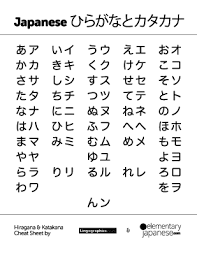 Japanese ひらがなとカタカナ
あア いイ うウ えエ おオ
かカ きキ くク けケ こコ
さサ しシ すス せセ そソ
たタ ちチ つツ てテ とト
なナ にニ ぬヌ ねネ のノ
はハ ひヒ ふフ へヘ ほホ
まマ みミ むム めメ もモ
やヤ ゆユ よヨ
らラ りリ るル れレ ろロ
わワ をヲ
んン
Hiragana & Katakana
Cheat Sheet by Lingographics & elementary
japanese.com